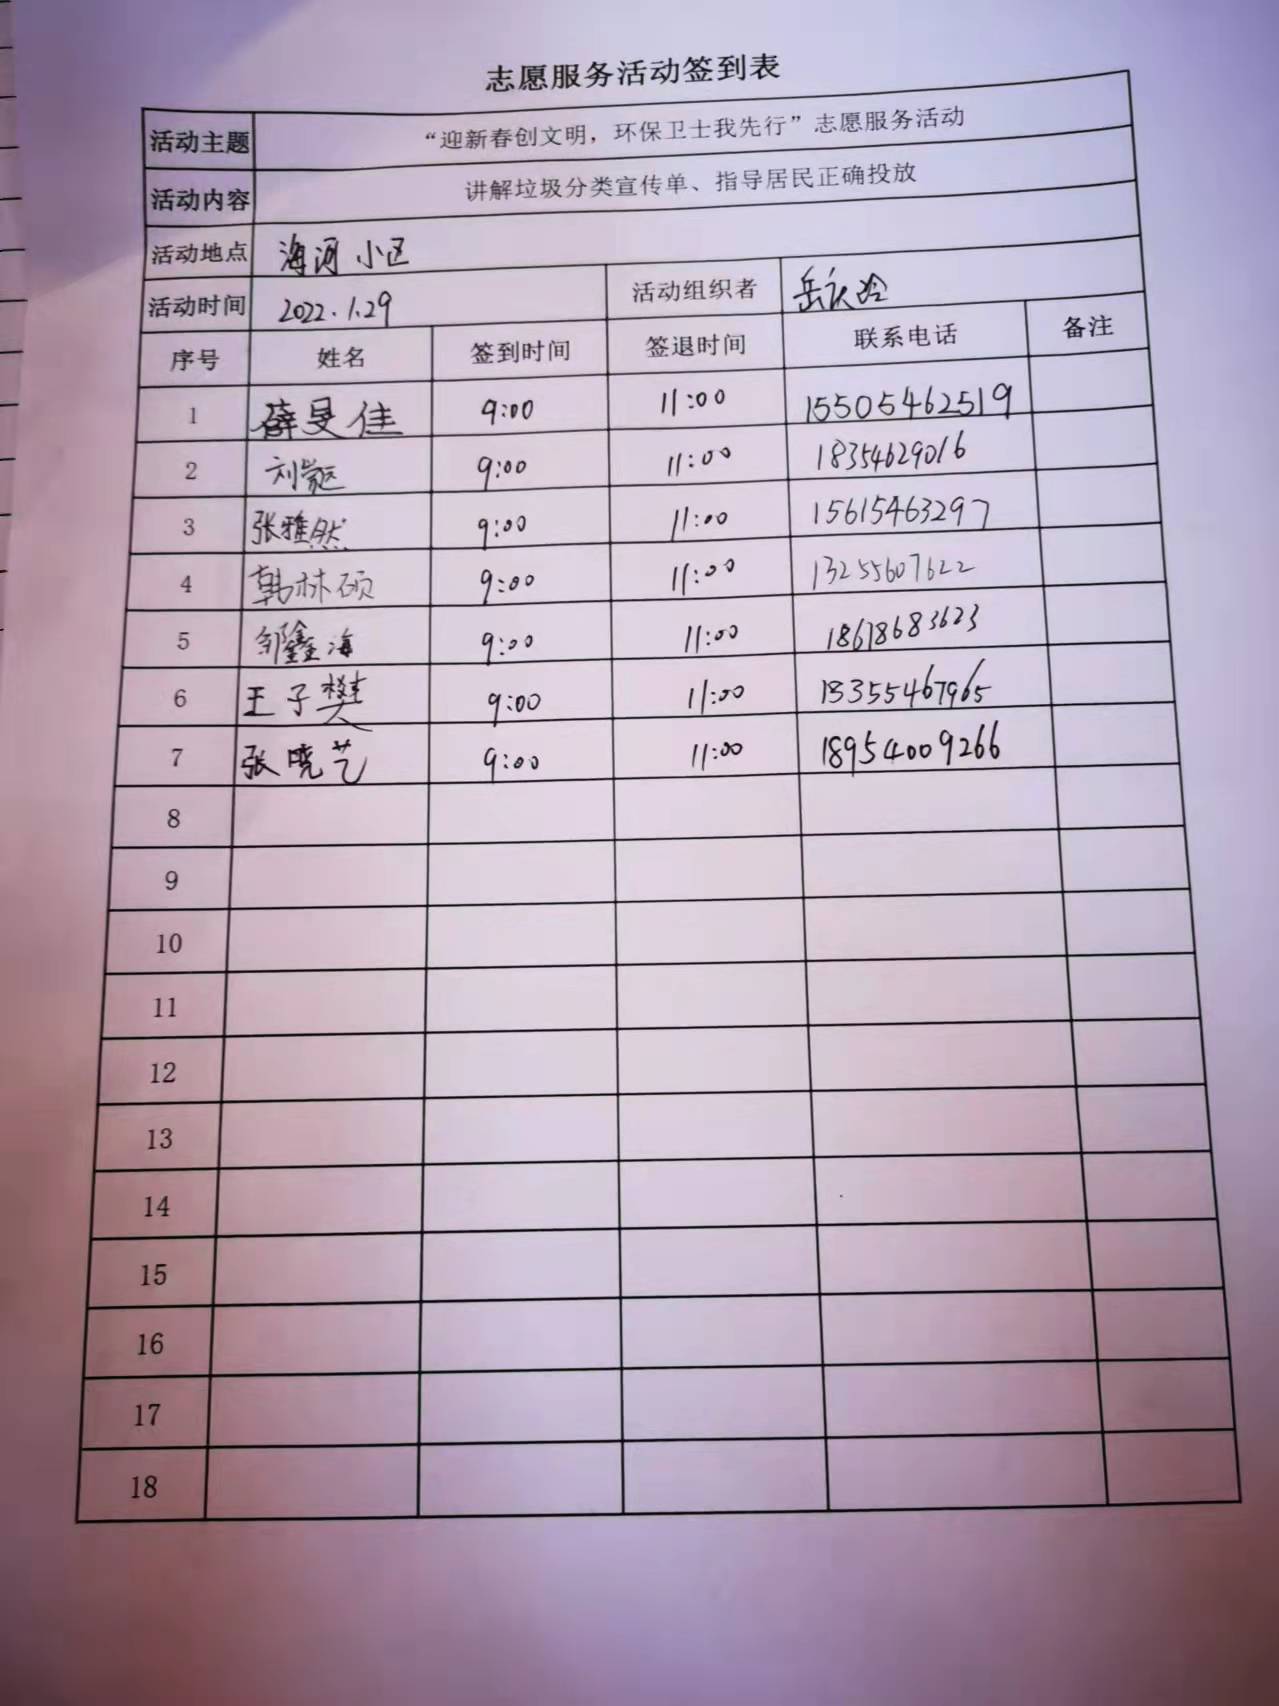 志愿服务活动签到表
活动主题 “迎新春创文明，环保卫士我先行”志愿服务活动
活动内容 讲解垃圾分类宣传单、指导居民正确投放
活动地点 海河小区
活动时间 2022.1.29 活动组织者 岳
序号 姓名 签到时间 签退时间 联系电话 备注
1 薛旻佳 9:00 11:00 15505462519
2 刘 9:00 11:00 18354629016
3 张雅然 9:00 11:00 15615463297
4 韩林硕 9:00 11:00 13255607622
5 邹鑫海 9:00 11:00 18678683623
6 王子樊 9:00 11:00 13355467965
7 张晓艺 9:00 11:00 18954009266
8
9
10
11
12
13
14
15
16
17
18